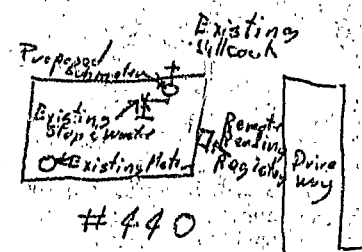 Existing
Sillcock
Proposed
Submeter
Existing
Stop & Waste
Existing Meter
Remote
Reading
Register
Drive
way
# 440